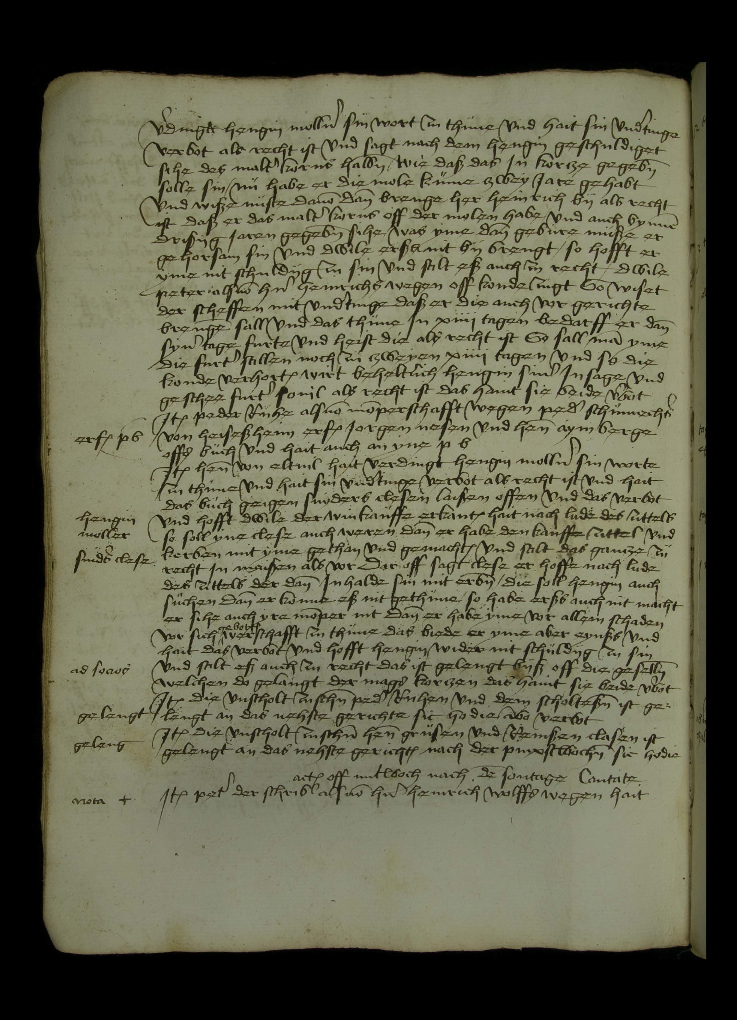 v'dingt hengin mollner sin wort zu thune vnd hait sin vnd'tinge
verbot als recht ist vnd sagt nach dem hengin geschuldiget
sihe des malt' korns halbn, wie daß das In kortze gegebn
solle sin, nu habe er die mole kume zwey Jare gehabt
vnd wiße nuste dauon dan brenge her heinrich bij als recht
ist daß er das malt' korns off der molen habe vnd auch bynne
drissig Jaren gegebn sihe was yme dan gebure muße er
gehorsam sin vnd dwile erß nit bij brengt, so hofft er
yme nit schuldig zu sin vnd stilt eß auch zu recht, dwile
peter als von hern heinrichs wegen off konde zugt So wiset
der scheffen mit vnd'tinge daß er die auch vor gerichte
brenge sall vnd das thune In xiiij tagen bedarff er dan
syner tage furter vnd heist die als recht ist So sall man yme
die furt' stillen noch zu zweyen xiiij tagen vnd so die
konde verhort wirt beheltlich hengin siner In sage vnd
geschee furt' souil als recht ist das haint sie beide v'bot
Jt peder Ruhe als von momperschafft wegen peder schumechers
erf p 6 von heisesheim erf Jorgen nesen vnd hen aym berge
offs buch vnd hait auch an yme p 6
Jt hen von eltuil hait verdingt hengin mollner sin worte
zu thune vnd hait sin vnd'tinge verbot als recht ist vnd hait
das buch geigen snyders clesen laissen offen vnd das verbot
hengin vnd hofft dwile der winkauffe erkant hait nach lude des zittels
moller so soll yme clese auch weren dan er habe den kauffe zittel vnd
kerben mit yme gethan vnd gemacht vnd stilt das gantze zu
snid's clese recht in maißen als vor Dar off sagt clese er hoffe nach lude
des zittels der dan Inhalde sin mit erbn, die soll hengin auch
suchen dan er konne eß nit gethune, so habe erß auch nit macht
er sihe auch yre momper nit dan er habe yme vor allem schaden
gebott
vor sich werschafft zu thune das biede er yme aber eynß vnd
hait das verbot vnd hofft hengin wider nit schuldig zu sin
ad socios vnd stilt eß auch zu recht das ist gelengt bijß off die geselln
welchen do gelangt der mags kortzen das haint sie beide v'bot
Jt die vnscholt zuschn peder Ruhen vnd dem scholtesn ist ge-
gelengt lengt an das nehste gerichte sic hodie vbo verbot
Jt die vnscholt zuschn hen grusen vnd Remßen clasen ist
geleng gelengt an das nehste gericht nach der pinxstwochn sic hodie
act off mitwoch nach de sontage Cantate
nota + Jt peter der schriber als von hern heinrich wolffs wegen hait